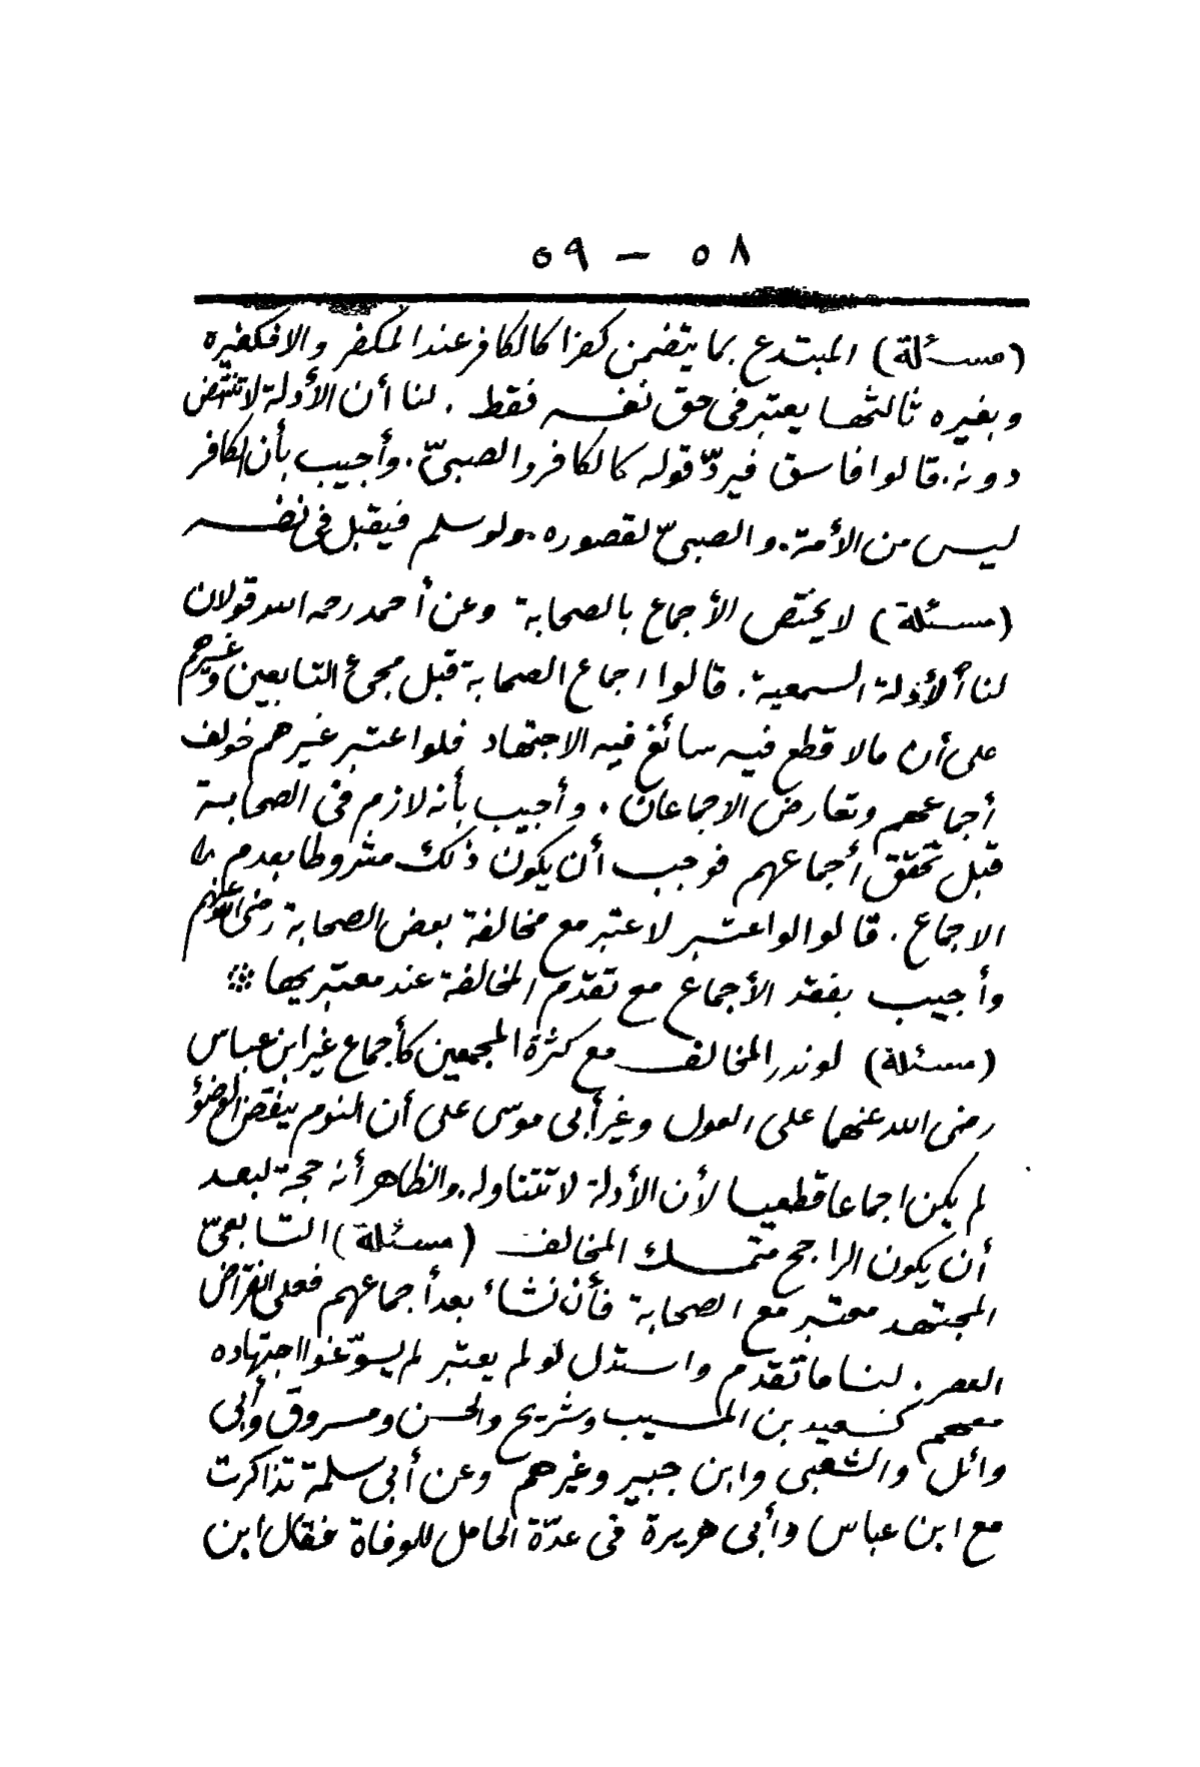 ٥٨ — ٥٩
(مسئلة) المبتدع بما يتضمن كفرا كالكافر عند المكفر والا فكغيره
وبغيره ثالثها يعتبر فى حق نفسه فقط . لنا أن الأدلة لا تنتهض
دونه . قالوا فاسق فيردّ قوله كالكافر والصبىّ . وأجيب بأن الكافر
ليس من الأمة . والصبىّ لقصوره . ولو سلم فيقبل فى نفسه
(مسئلة) لا يختص الأجماع بالصحابة وعن أحمد رحمه الله قولان
لنا الأدلة السمعية . قالوا اجماع الصحابة قبل مجئ التابعين وغيرهم
على أن مالا قطع فيه سائغ فيه الاجتهاد فلو اعتبر غيرهم خولف
أجماعهم وتعارض الاجماعان . وأجيب بأنه لازم فى الصحابة
قبل تحقق أجماعهم فوجب أن يكون ذلك مشروطا بعدم
الاجماع . قالوا لو اعتبر لاعتبر مع مخالفة بعض الصحابة رضى الله عنهم
وأجيب بفقد الأجماع مع تقدّم المخالفة عند معتبريها
(مسئلة) لو ندر المخالف مع كثرة المجمعين كأجماع غير ابن عباس
رضى الله عنهما على العول وغير أبى موسى على أن النوم ينقض الوضؤ
لم يكن اجماعا قطعيا لأن الأدلة لا تتناوله . والظاهر أنه حجة لبعد
أن يكون الراجح متمسك المخالف (مسئلة) التابعىّ
المجتهد معتبر مع الصحابة فأن نشاء بعد أجماعهم فعلى انقراض
العصر . لنا ما تقدم واستدل لو لم يعتبر لم يسوّغوا اجتهاده
معهم كسعيد بن المسيب وشريح والحسن ومسروق وأبى
وائل والشعبى وابن جبير وغيرهم وعن أبى سلمة تذاكرت
مع ابن عباس وأبى هريرة فى عدّة الحامل للوفاة فقال ابن